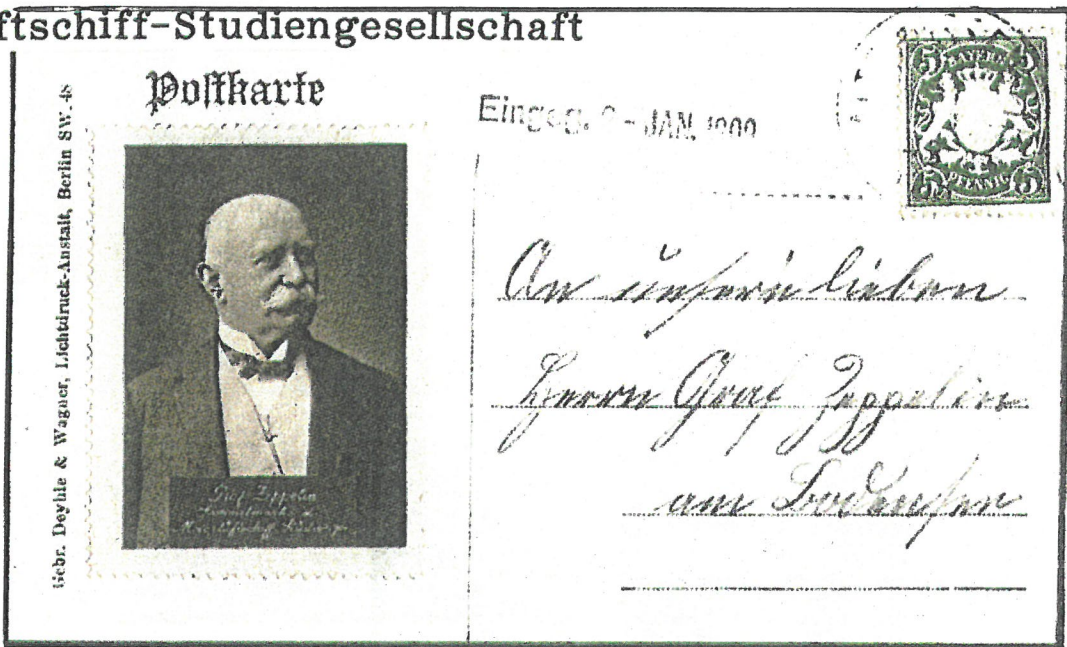 ftschiff-Studiengesellschaft
Postkarte
Gebr. Deyhle & Wagner, Lichtdruck-Anstalt, Berlin SW. 48
Graf Zeppelin
Eingeg. JAN. 1909
BAYERN
5 5
PFENNIG
5 5
An unsern lieben
Herrn Graf Zeppelin
am Bodensee